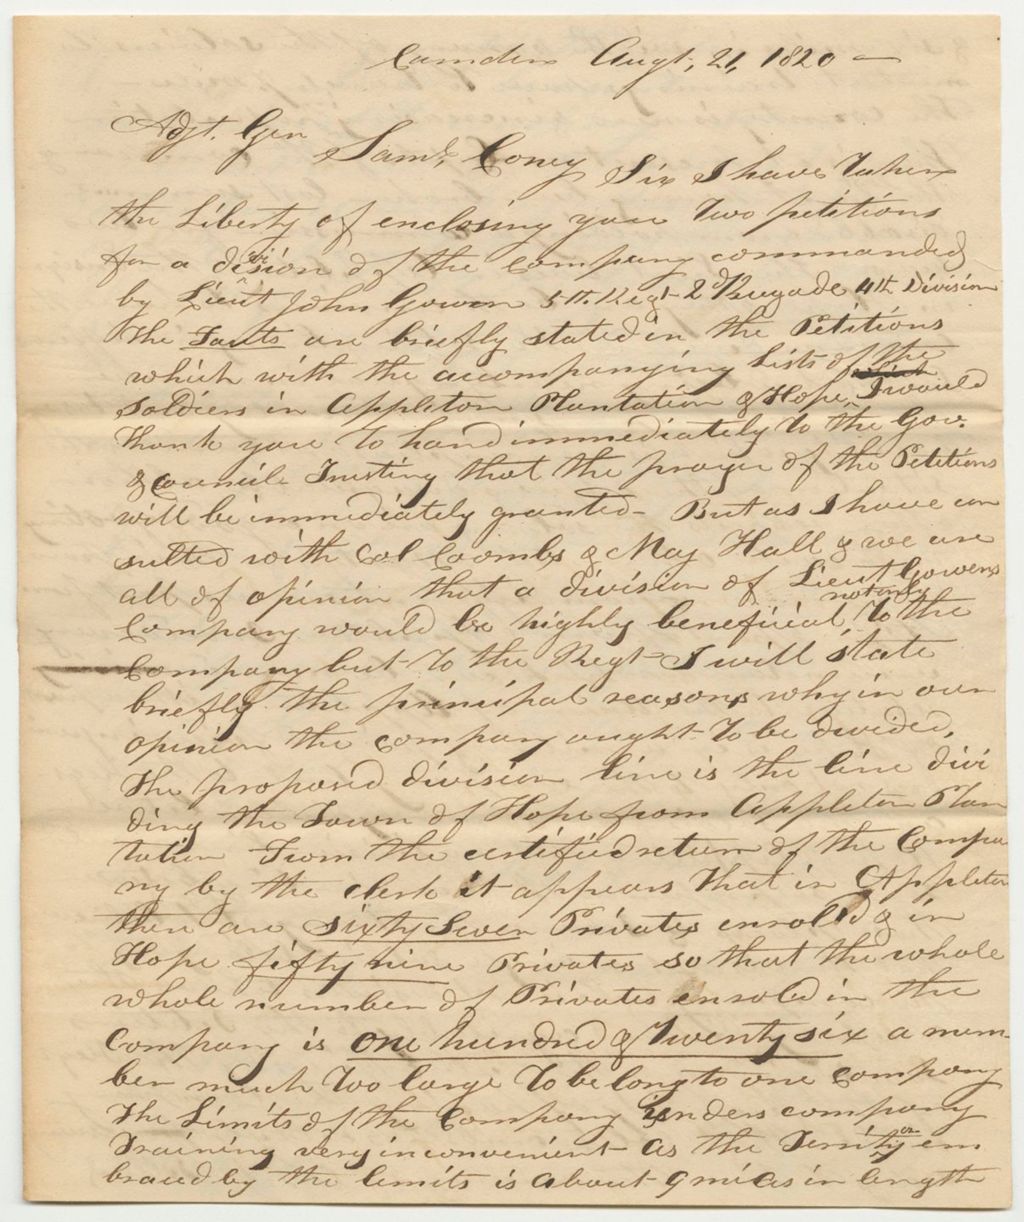 Camden Augt, 21, 1820 —
Adjt. Gen
Saml. Cony Sir I have Taken
the Liberty of enclosing you Two petitions
for a division of the company commanded
by Lieut John Gowen 5th. Regt 2d Brigade 4th Division
The Facts are briefly stated in the Petitions
which with the accompanying Lists of the
Soldiers in Appleton Plantation & Hope, I would
thank you To hand immediately To the Gov.
& Council Trusting that the prayer of the Petitions
will be immediately granted - But as I have con
sulted with Col Coombs & Maj Hall & we are
all of opinion that a division of Lieut Gowens
Company would be highly beneficial not only To the
Company but To the Regt I will state
briefly the principal reasons why in our
opinion the company ought To be divided,
The proposed division line is the line divi
ding the Town of Hope from Appleton Plan
tation From the certified return of the Compa
ny by the clerk it appears That in Appleton
there are Sixty Seven Privates enrolld & in
Hope fifty nine Privates so that the whole
whole number of Privates enroled in the
Company is one hundred & Twenty six a num
ber much Too large To belong to one Company
The Limits of the Company renders company
Training very inconvenient as the Territory em
braced by the limits is about 9 miles in length